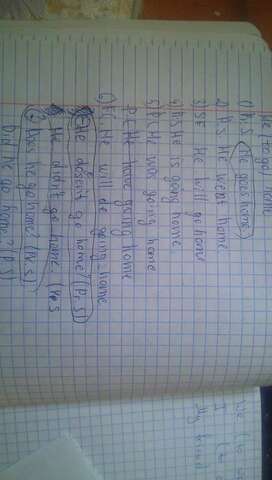 He (to go) home
1) Pr.S. He goes home
2) P.S. He went home
3) S.F. He will go home
4) He is going home
5) P.C. He was going home
He home going home
6) F.C. He will de going home
He doesn't go home? (Pr.S)
He didn't go home. (P.S
he go home? (Pr.S)
Did he go home? (P.S)
We (to
I (to
My friend